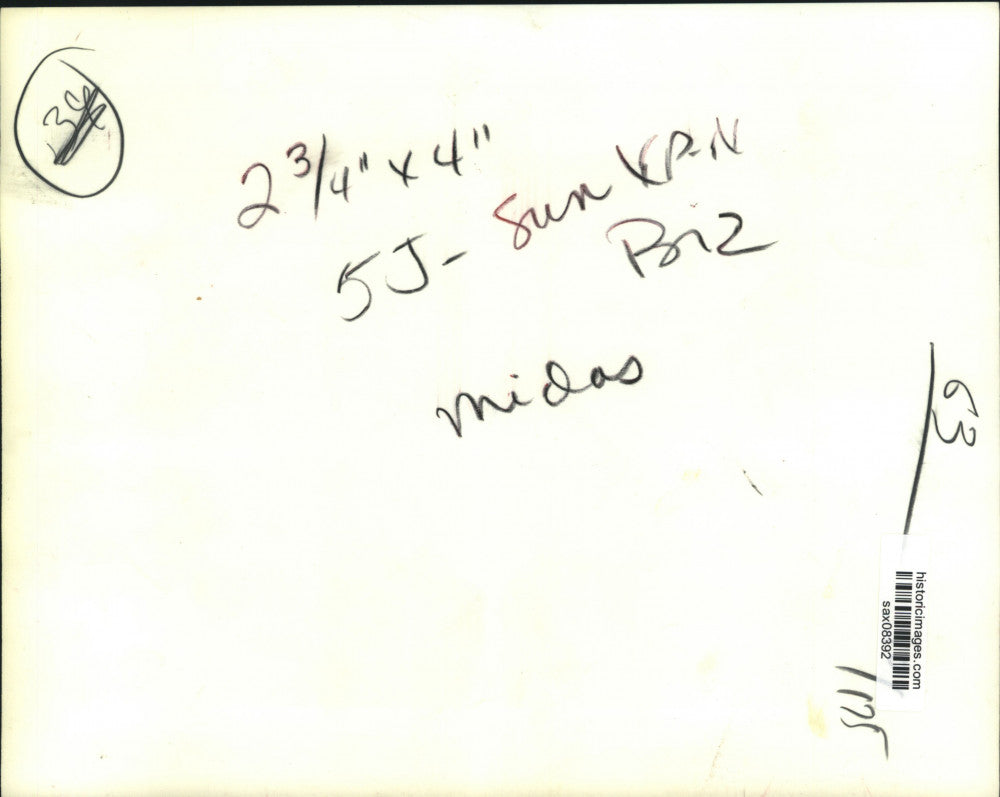 2 3/4" x 4"
5J- Sun
Biz
midas
63
historicimages.com
sax08392